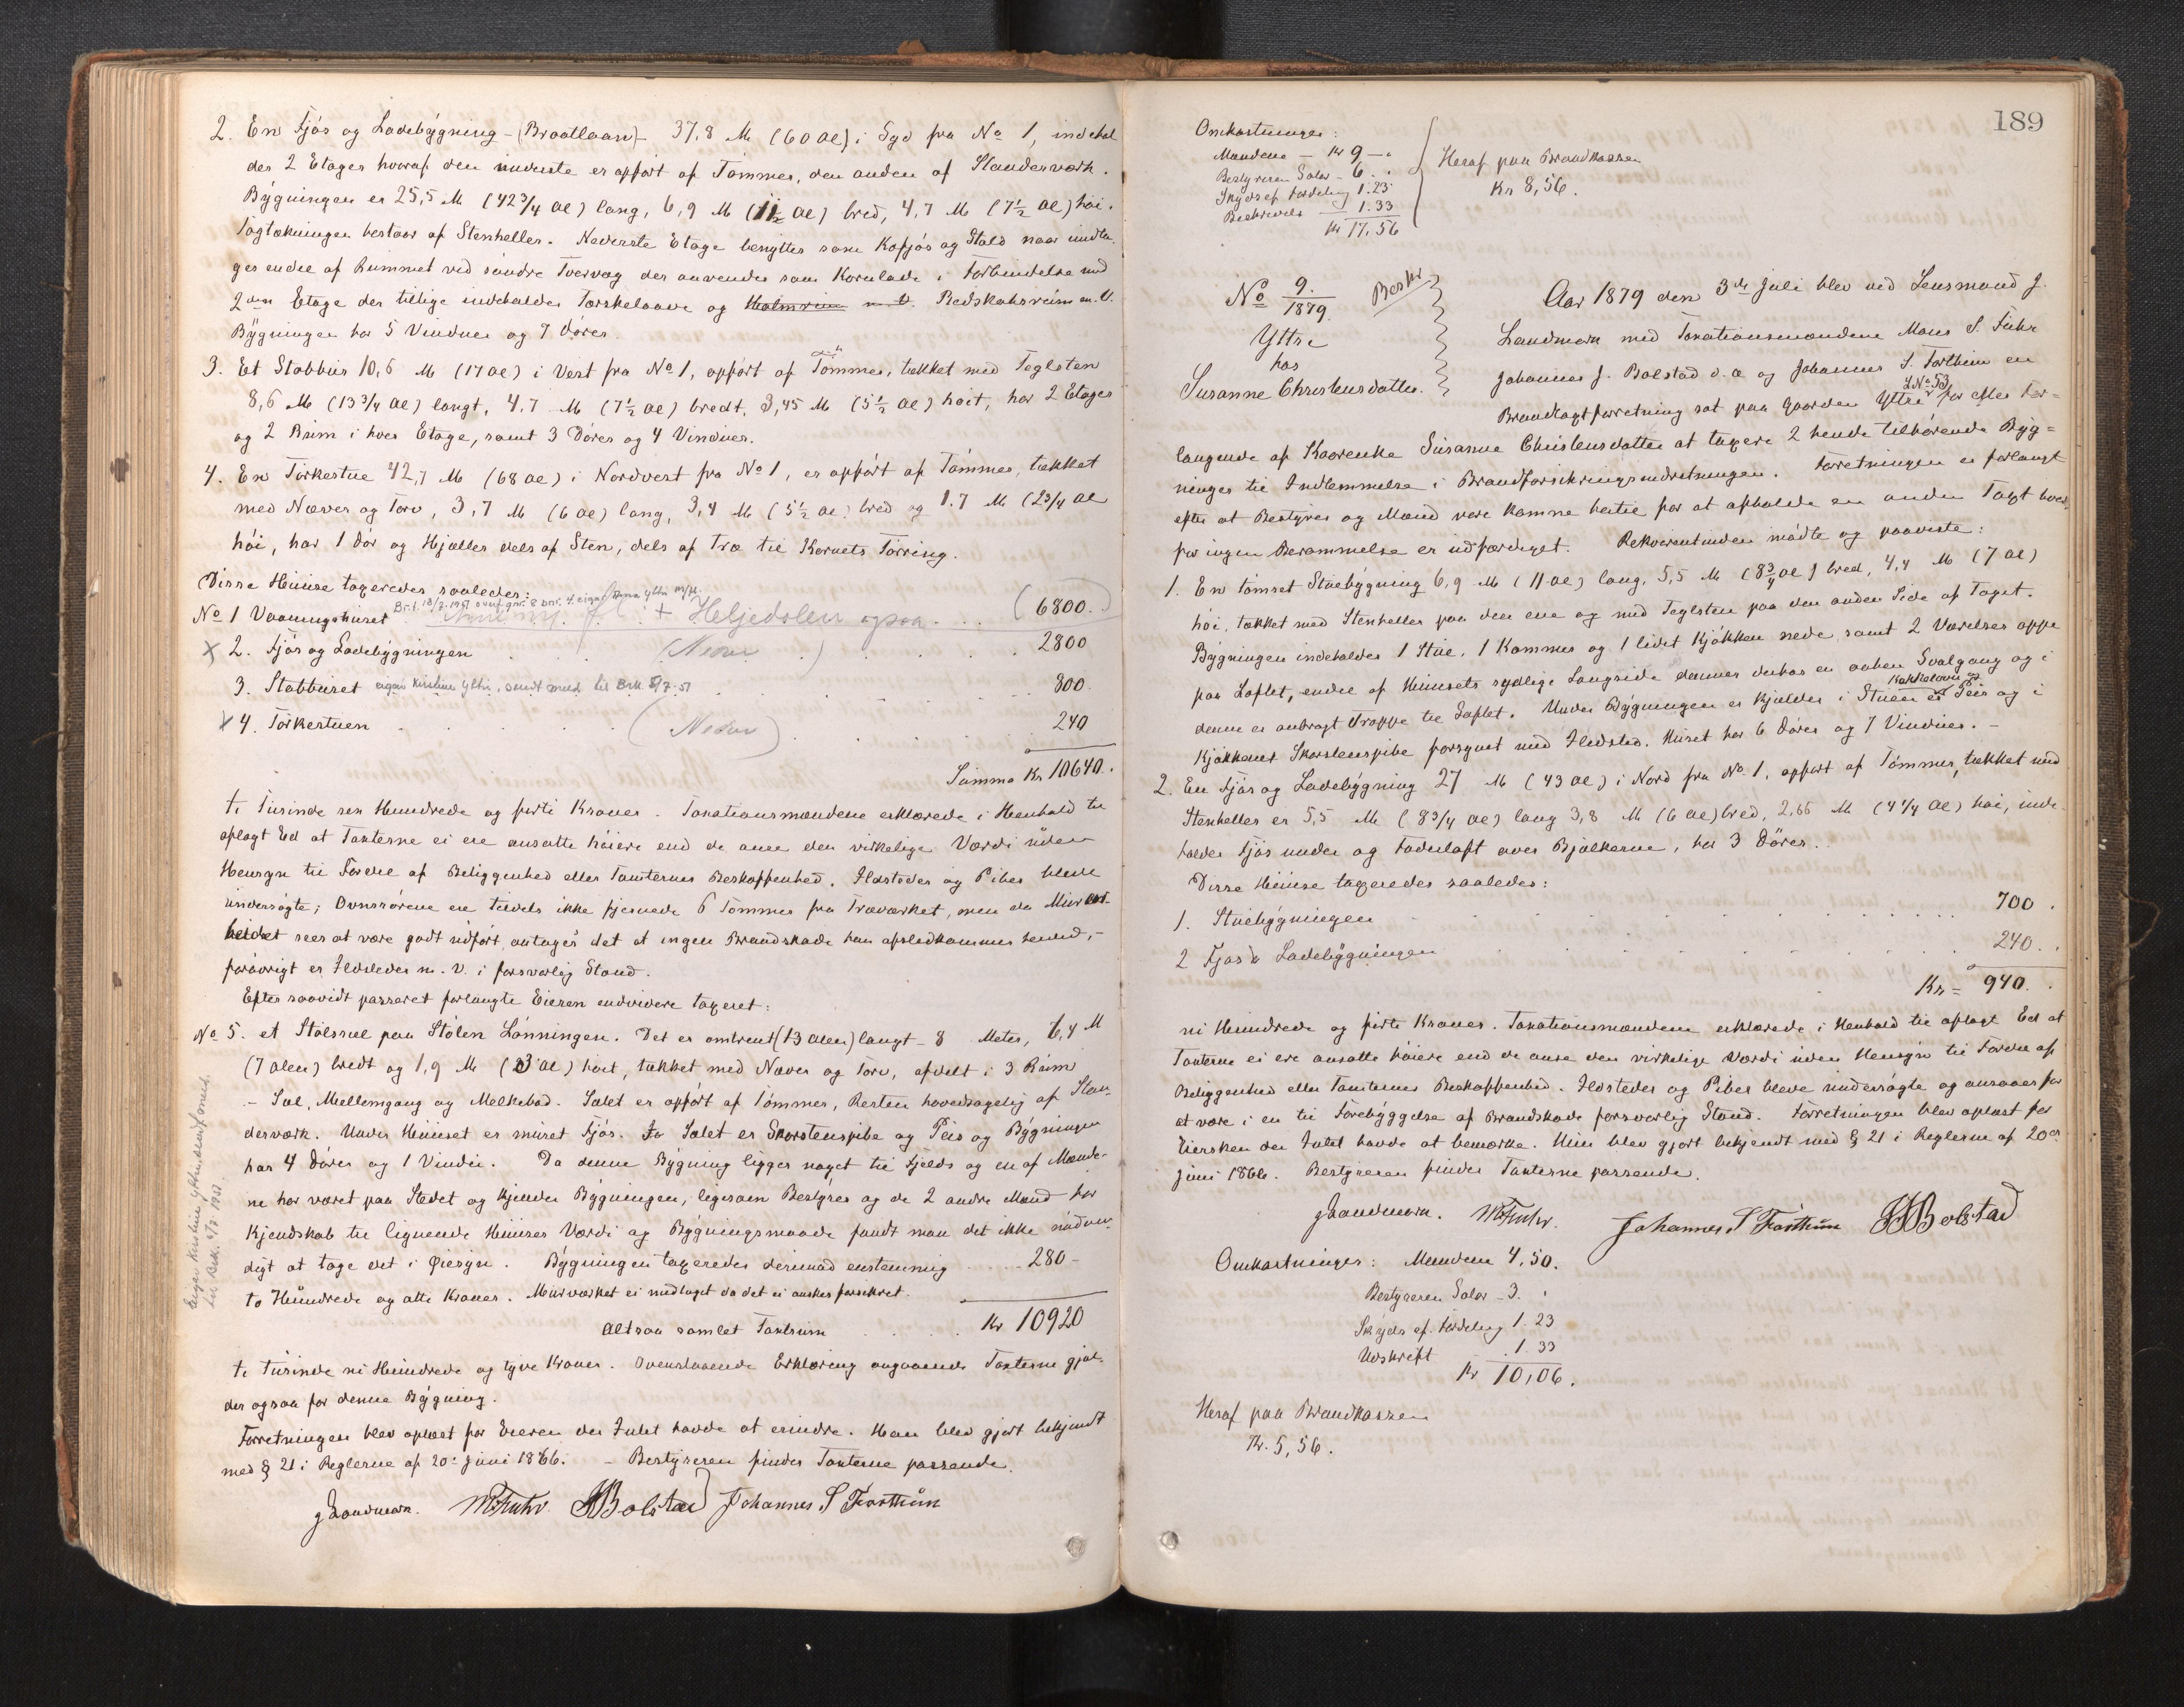 2. En Fjøs og Ladebygning - (Braatlaan) - 37,8 M (60 Al) i Syd fra No 1, indehol
der 2 Etager hvoraf den underste er opført af Tømmer, den anden af Standerværk.
Bygningen er 25,5 M (42 3/4 Al) lang, 6,9 M (11 Al) bred, 4,7 M (7 1/2 Al) høi.
Tagtækningen bestaar af Stenheller. Nederste Etage benyttes som Kofjøs og Stald naar undta-
ges endel af Rummet ved søndre Tvervæg der anvendes som Kornlade i Forbindelse med
2den Etage der tillige indeholder Tørskelaave og Halmrum m. V. Redskabsrum m. V.
Bygningen har 5 Vinduer og 7 Døre.
3. Et Stabbur 10,6 M (17 Al) i Vest fra No 1, opført af Tømmer, tækket med Teglsten
8,6 M (13 3/4 Al) langt, 4,7 M (7 1/2 Al) bredt, 3,45 M (5 1/2 Al) høit, har 2 Etager
og 2 Rum i hver Etage, samt 3 Døre og 4 Vinduer.
4. En Tørkestue 42,7 M (68 Al) i Nordvest fra No 1, er opført af Tømmer, tækket
med Næver og Torv, 3,7 M (6 Al) lang, 3,4 M (5 1/2 Al) bred og 1.7 M (2 3/4 Al
høi, har 1 Dør og Hjeller dels af Sten, dels af Træ til Kornets Tørring.
Disse Huuse taxeredes saaledes:
No 1 Vaaningshuset + Heljedolen ogsaa (6800.)
x 2. Fjøs og Ladebygningen (Nedre) 2800
3. Stabburet eigar Kirstine Yttri, sendt meld. til Brk 5/7-51 800
x 4. Tørkestuen (Nedre) 240
Summa Kr 10640.
ti Tusinde sex Hundrede og firti Kroner. Taxationsmændene erklærede i Henhold til
aflagt Ed at Taxterne ei ere ansatte høiere end de anse den virkelige Værdi uden
Hensyn til Fordel af Beliggenhed eller Tomternes Beskaffenhed. Ildsteder og Piber bleve
undersøgte; Ovnsrørene ere tildels ikke fjernede 6 Tommer fra Træværket, men da Murar-
beidet sees at være godt udført antages det at ingen Brandskade kan afstedkommes herved,-
forøvrigt er Ildsteder m. V. i forsvarlig Stand.
Efter saavidt passeret forlangte Eieren endvidere taxeret:
No 5. et Stølssel paa Stølen Lønningen. Det er omtrent (13 Alen) langt - 8 Meter, 4,4 M
(7 Alen) bredt og 1,9 M (3 Al) høit, tækket med Næver og Torv, afdelt i 3 Rum
- Sel, Mellemgang og Melkebod. Selet er opført af Tømmer, Resten hovedsagelig af Stan-
derværk. Under Huuset er muret Fjøs. I Selet er Skorstenspibe og Peis og Bygningen
har 4 Døre og 1 Vindue. Da denne Bygning ligger noget til Fjelds og en af Mænde-
ne har været paa Stedet og kjender Bygningen, ligesom Bestyrer og de 2 andre Mænd har
Kjendskab til lignende Huuses Værdi og Bygningsmaade fandt man det ikke nødven-
digt at tage det i Øiesyn. Bygningen taxeredes derimod enstemmig 280-
to Hundrede og otti Kroner. Murværket ei medtaget da det ei ønskes forsikret.
Altsaa samlet Taxtsum Kr 10920
ti Tusinde ni Hundrede og tyve Kroner. Ovenstaaende Erklæring angaaende Taxterne gjæl-
der ogsaa for denne Bygning.
Forretningen blev oplæst for Eieren der Intet havde at erindre. Han blev gjort bekjendt
med § 21 i Reglerne af 20de Juni 1866. - Bestyreren finder Taxterne passende.
J Landmark. M S Fuhr. J J Bolstad Johannes S Forthun
189
Omkostninger:
Mændene - Kr 9 -
Bestyreren Salær - 6.
Skyds ef. Fordeling 1.23
Beskrivels 1.33
Kr 17.56
Heraf paa Brandkassen
Kr 8,56.
No 9./1879 Beskr
Yttri
hos
Susanne Christensdatter.
Aar 1879 den 3de Juli blev ved Lensmand J.
Landmark med Taxationsmændene Mons S. Fuhr
Johannes J. Bolstad o. a og Johannes S. Forthun en
Brandtaxtforretning sat paa Gaarden Yttri LNo 53 for efter For=
langende af Kaarenke Susanne Christensdatter at taxere 2 hende tilhørende Byg=
ninger til Indlemmelse i Brandforsikringsindretningen. Forretningen er forlangt
efter at Bestyrer og Mænd vare komne hertil for at afholde en anden Taxt hvor-
for ingen Berammelse er udfærdiget. Rekvirentinden mødte og paaviste:
1. En tømret Stuebygning 6,9 M (11 Al) lang, 5,5 M (8 3/4 Al) bred, 4,4 M (7 Al)
høi, tækket med Stenheller paa den ene og med Teglsten paa den anden Side af Taget.
Bygningen indeholder 1 Stue, 1 Kammer og 1 lidet Kjøkken nede, samt 2 Værelser oppe
paa Loftet, endel af Huusets sydlige Langside danner derhos en aaben Svalgang og i
denne er anbragt Trappe til Loftet. Under Bygningen er Kjelder i Stuen er Kakkelovn og Peis og i
Kjøkkenet Skorstenspibe forsynet med Ildsted. Huset har 6 Døre og 7 Vinduer. -
2. En Fjøs og Ladebygning 27 M (43 Al) i Nord fra No 1, opført af Tømmer, tækket med
Stenheller er 5,5 M (8 3/4 Al) lang 3,8 M (6 Al) bred, 2,66 M (4 1/4 Al) høi, inde-
holder Fjøs under og Foderloft over Bjælkerne, har 3 Døre.
Disse Huuse taxeredes saaledes:
1. Stuebygningen 700.
2 Fjøs & Ladebygningen 240.
Kr = 940.
ni Hundrede og firti Kroner. Taxationsmændene erklærede i Henhold til aflagt Ed at
Taxterne ei ere ansatte høiere end de anse den virkelige Værdi uden Hensyn til Fordel af
Beliggenhed eller Tomternes Beskaffenhed. Ildsteder og Piber bleve undersøgte og ansaaes for
at være i en til Forebyggelse af Brandskade forsvarlig Stand. Forretningen blev oplæst for
Eiersken der Intet havde at bemærke. Hun blev gjort bekjendt med § 21 i Reglerne af 20de
Juni 1866. Bestyreren finder Taxterne passende.
J Landmark. M S Fuhr. Johannes S Forthun J J Bolstad
Omkostninger: Mændene 4,50.
Bestyreren Salær - 3.
Skyds ef. Fordeling 1.23
Udskrift 1.33
Kr 10,06.
Heraf paa Brandkassen
Kr. 5,56.